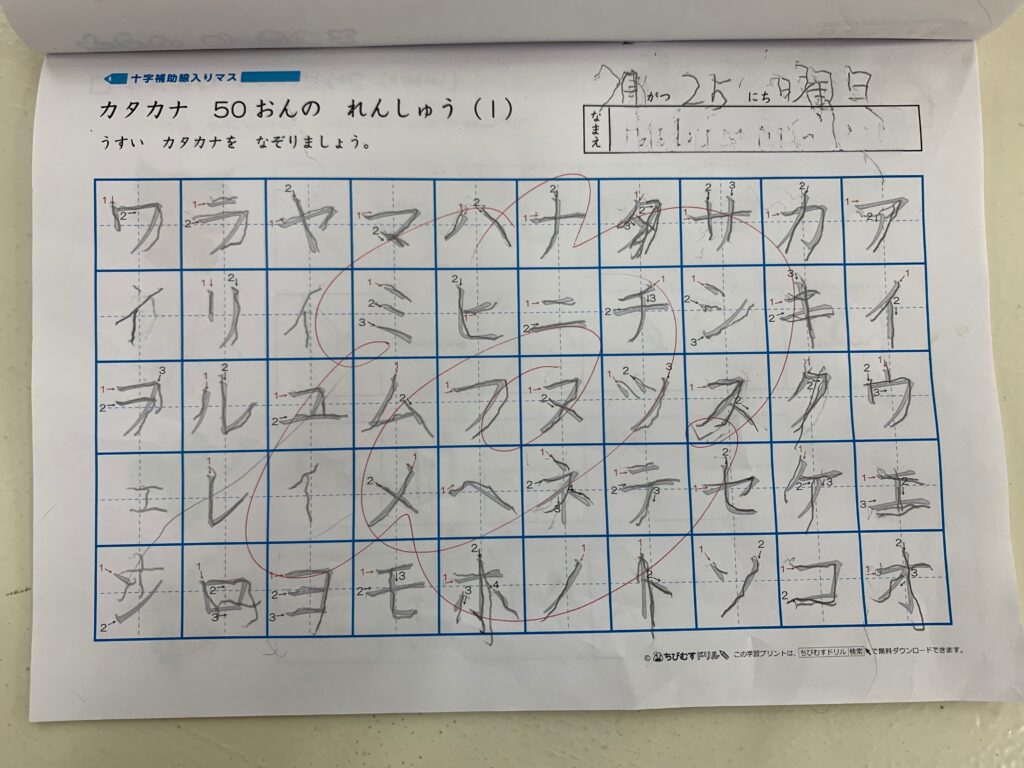 十字補助線入りマス
カタカナ 50おんの れんしゅう(1)
うすい カタカナを なぞりましょう。
がつ 25 にち 曜日
なまえ
アイウエオ
カキクケコ
サシスセソ
タチツテト
ナニヌネノ
ハヒフヘホ
マミムメモ
ヤイユイヨ
ラリルレロ
ワイヲエン
© ちびむすドリル この学習プリントは、ちびむすドリル 検索 で無料ダウンロードできます。